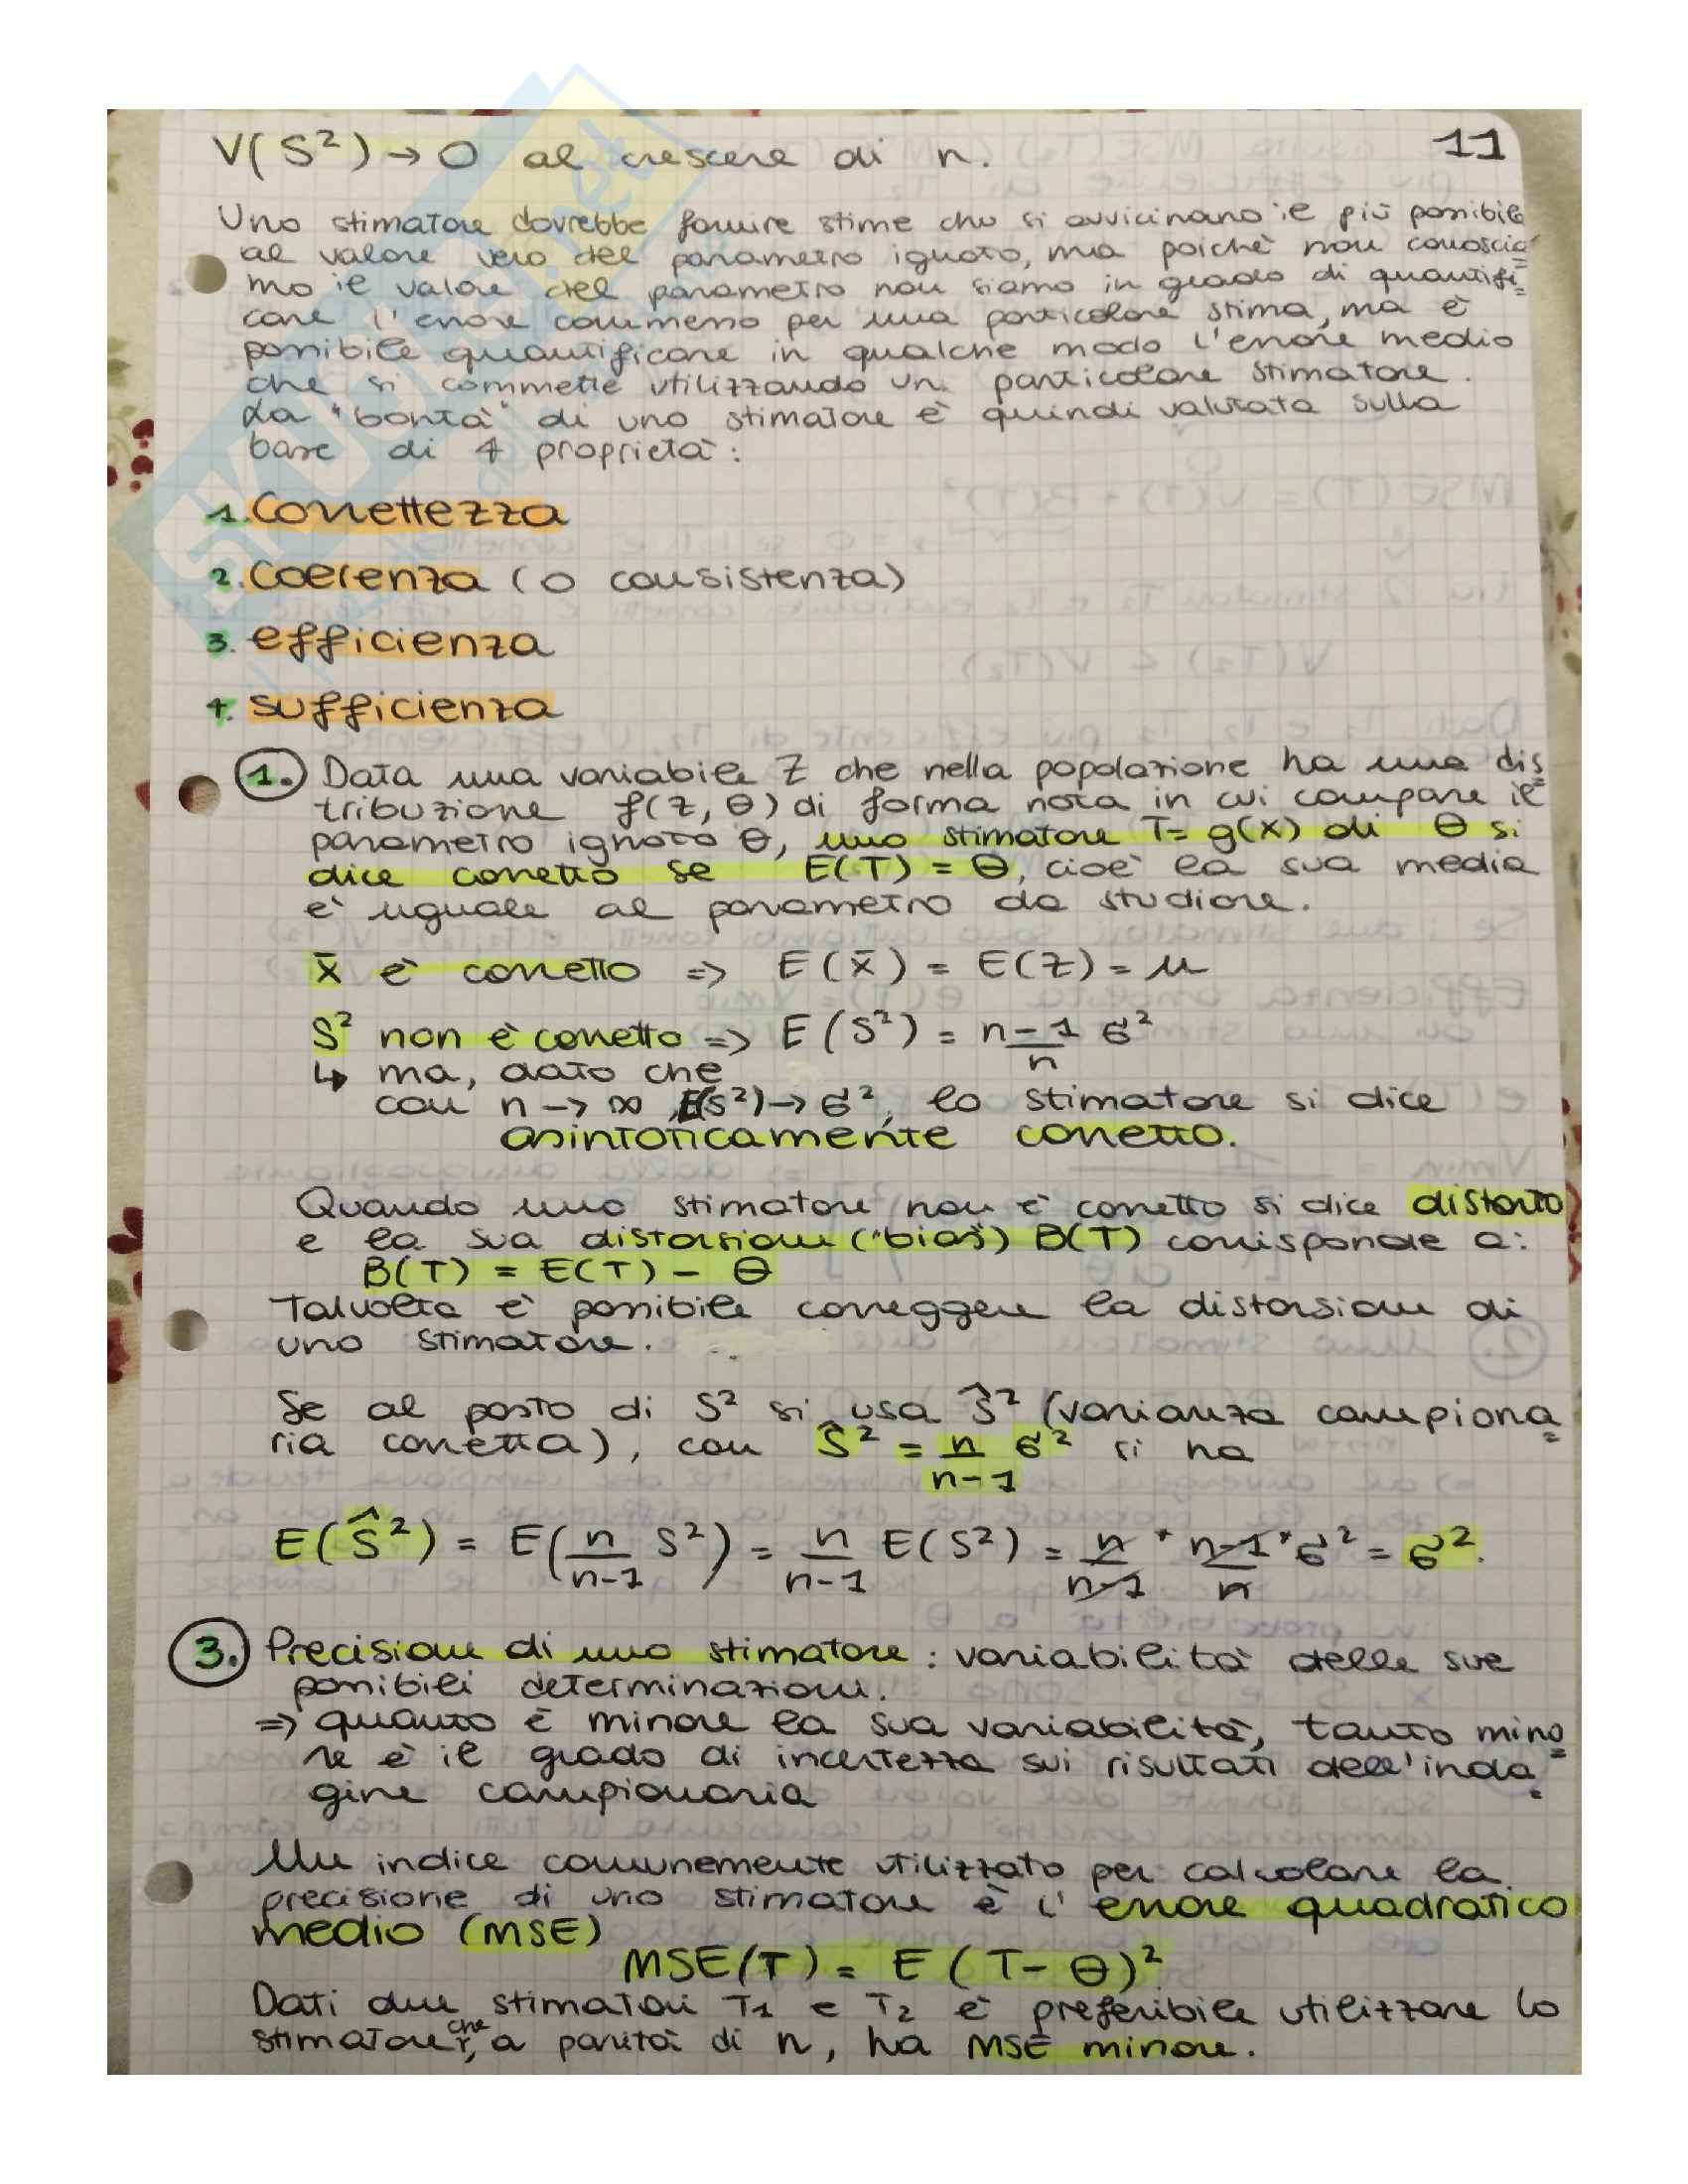 V(S²) → 0 al crescere di n.
11
Uno stimatore dovrebbe fornire stime che si avvicinano il più possibile
al valore vero del parametro ignoto, ma poichè non conoscia=
mo il valore del parametro non siamo in grado di quantifi=
care l'errore commesso per una particolare stima, ma è
possibile quantificare in qualche modo l'errore medio
che si commette utilizzando un particolare stimatore.
La "bontà" di uno stimatore è quindi valutata sulla
base di 4 proprietà:
1. Correttezza
2. Coerenza (o consistenza)
3. efficienza
4. sufficienza
1. Data una variabile Z che nella popolazione ha una dis=
tribuzione f(z, θ) di forma nota in cui compare il
parametro ignoto θ, uno stimatore T= g(X) di θ si
dice corretto se E(T) = θ, cioè la sua media
è uguale al parametro da studiare.
x̄ è corretto => E(x̄) = E(Z) = μ
S² non è corretto => E(S²) = n-1/n σ²
↳ ma, dato che
con n → ∞, E(S²) → σ², lo stimatore si dice
asintoticamente corretto.
Quando uno stimatore non è corretto si dice distorto
e la sua distorsione ("bias") B(T) corrisponde a:
B(T) = E(T) - θ
Talvolta è possibile correggere la distorsione di
uno stimatore.
Se al posto di S² si usa Ŝ² (varianza campiona=
ria corretta), con Ŝ² = n/n-1 σ² si ha
E(Ŝ²) = E(n/n-1 S²) = n/n-1 E(S²) = n/n-1 · n-1/n · σ² = σ².
3. Precisione di uno stimatore: variabilità delle sue
possibili determinazioni.
=> quanto è minore la sua variabilità, tanto mino=
re è il grado di incertezza sui risultati dell'inda=
gine campionaria
Un indice comunemente utilizzato per calcolare la
precisione di uno stimatore è l'errore quadratico
medio (MSE)
MSE(T) = E(T-θ)²
Dati due stimatori T₁ e T₂ è preferibile utilizzare lo
stimatore che, a parità di n, ha MSE minore.